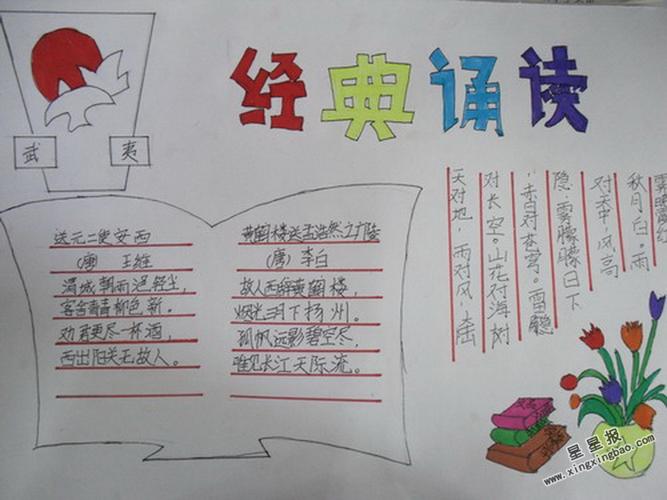 经典诵读
武 夷
送元二使安西
(唐) 王维
渭城朝雨浥轻尘,
客舍青青柳色新。
劝君更尽一杯酒,
西出阳关无故人。
黄鹤楼送孟浩然之广陵
(唐) 李白
故人西辞黄鹤楼,
烟花三月下扬州。
孤帆远影碧空尽,
唯见长江天际流。
天对地,雨对风,大陆
对长空。山花对海树
,赤日对苍穹。雷隐
隐,雾朦朦。日下
对天中,风高
秋月白,雨
星星报
www.xingxingbao.com